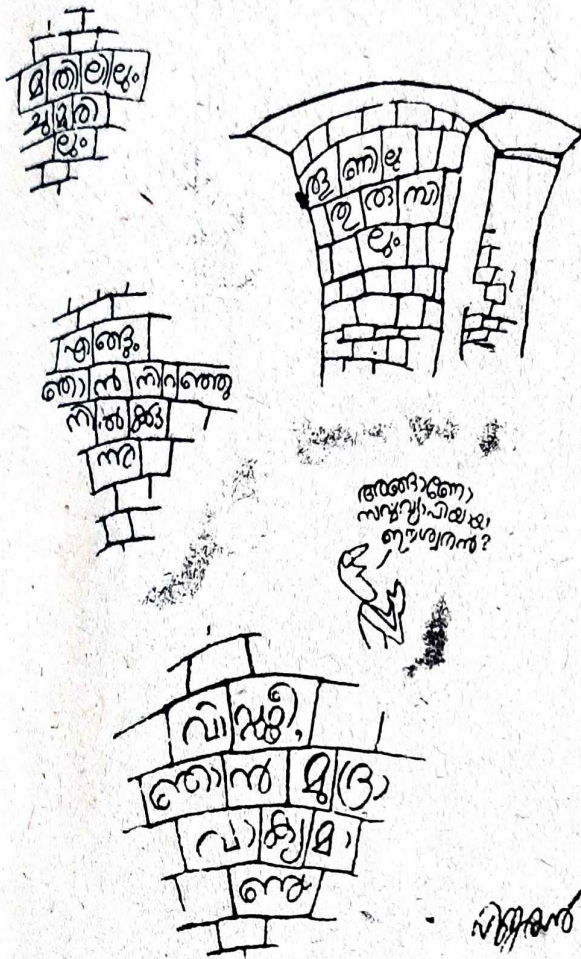 മതിലിലും
ചുമരി
ലും
തൂണിലു
തുരുമ്പി
ലും
എങ്ങും
ഞാൻ നിറഞ്ഞു
നിൽക്കു
ന്നു
അങ്ങാണോ
സർവ്വവ്യാപിയായ
ഈശ്വരൻ?
വിഡ്ഢീ,
ഞാൻ മുദ്രാ
വാക്യമാ
ണ്